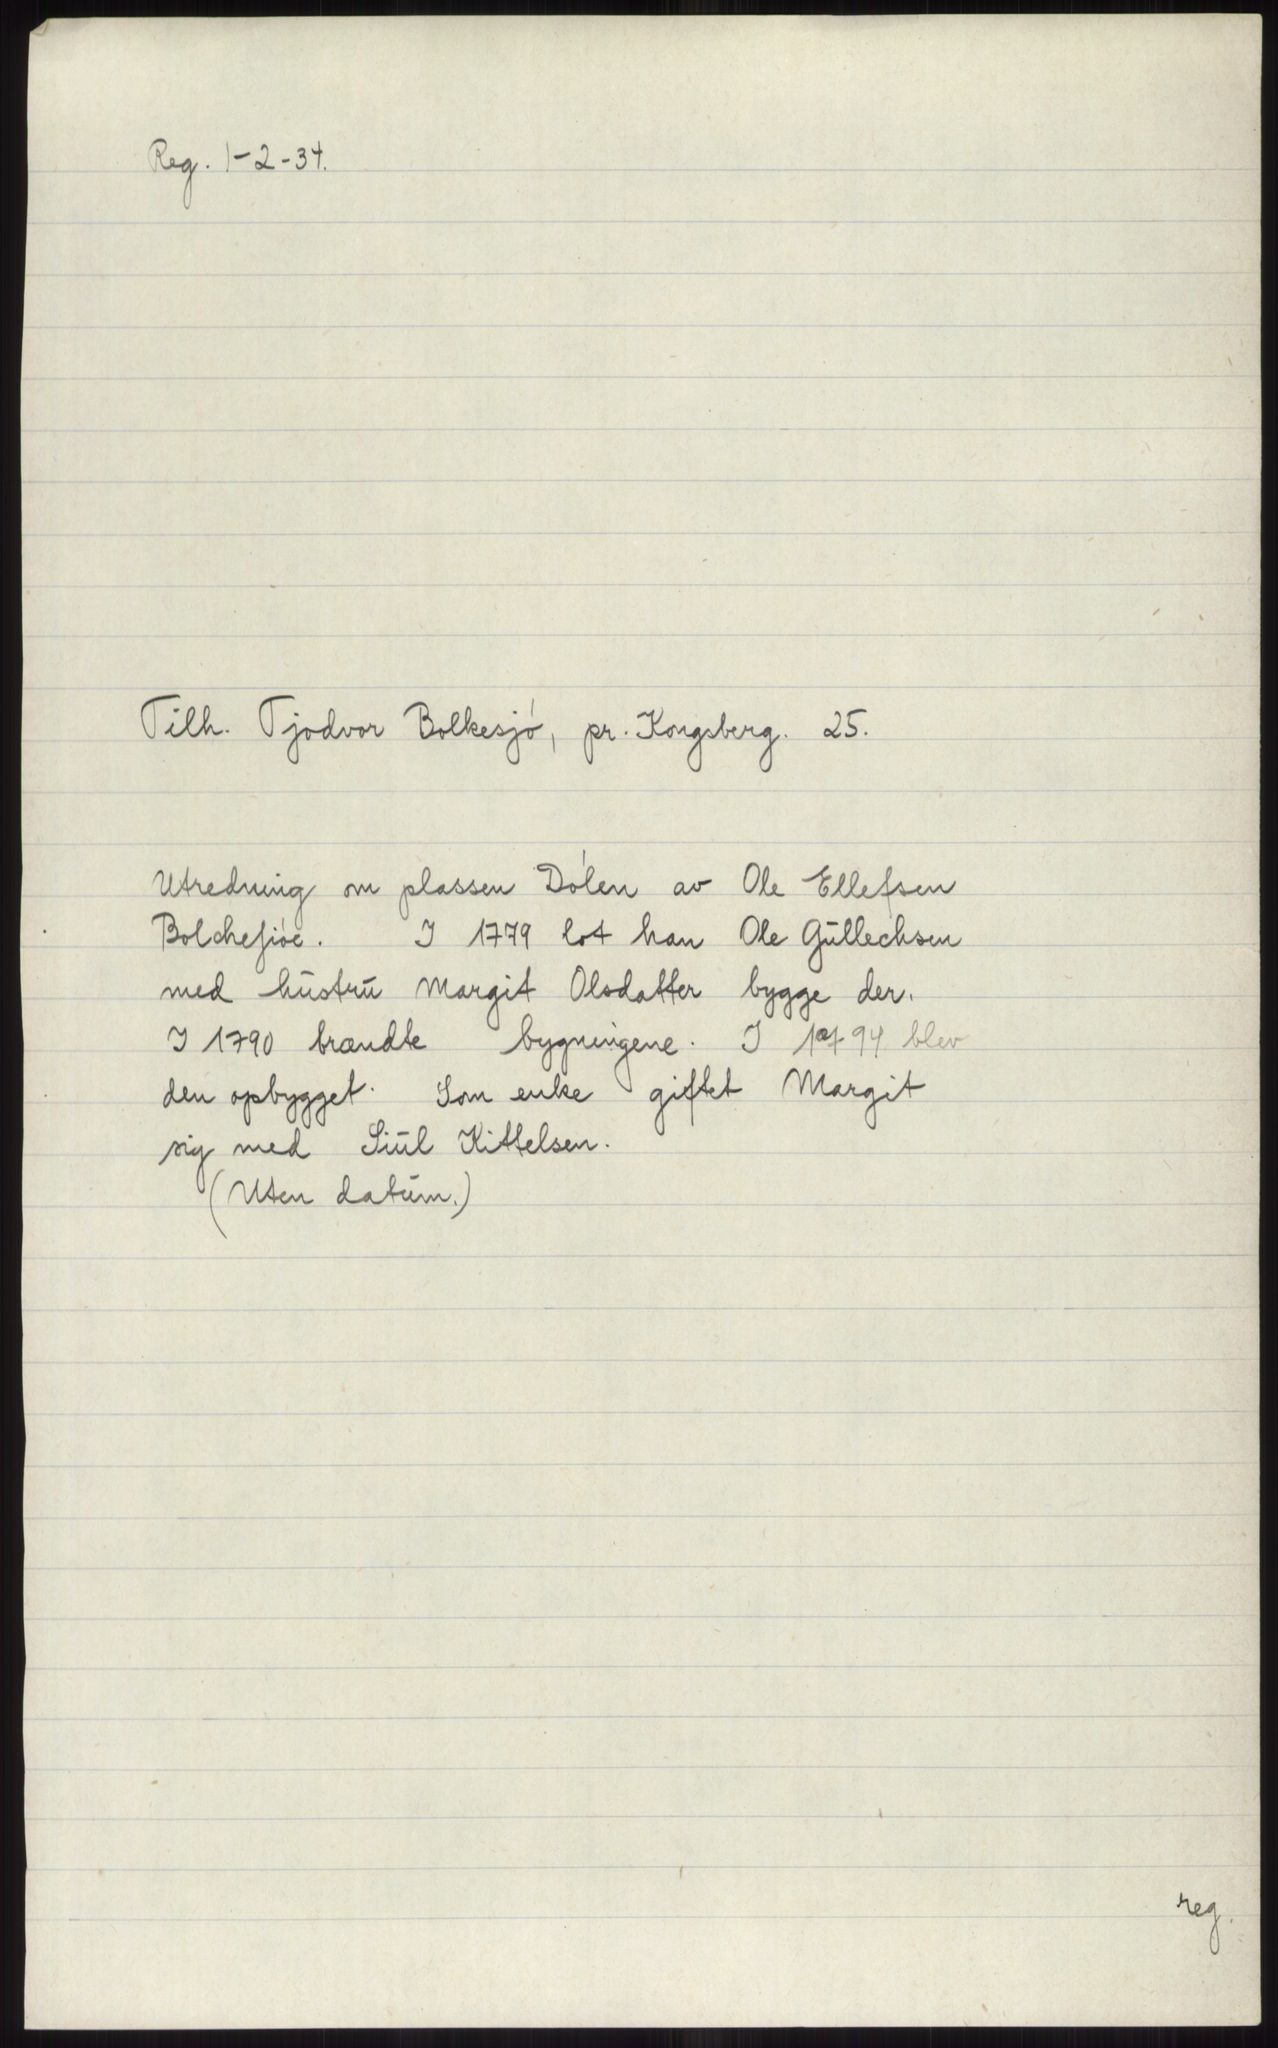 Reg. 1-2-34.
Tilh. Tjodvor Bolkesjó, pr. Kongsberg. 25.
Utredning om plassen Dólen av Ole Ellefsen
Bolchesióe. I 1779 lot han Ole Gullechsen
med hustru Margit Olsdatter bygge der.
I 1790 brandte bygningene. I 1794 blev
den opbygget. Som enke giftet Margit
sig med Siul Kittelsen.
(Uten datum.)
reg.